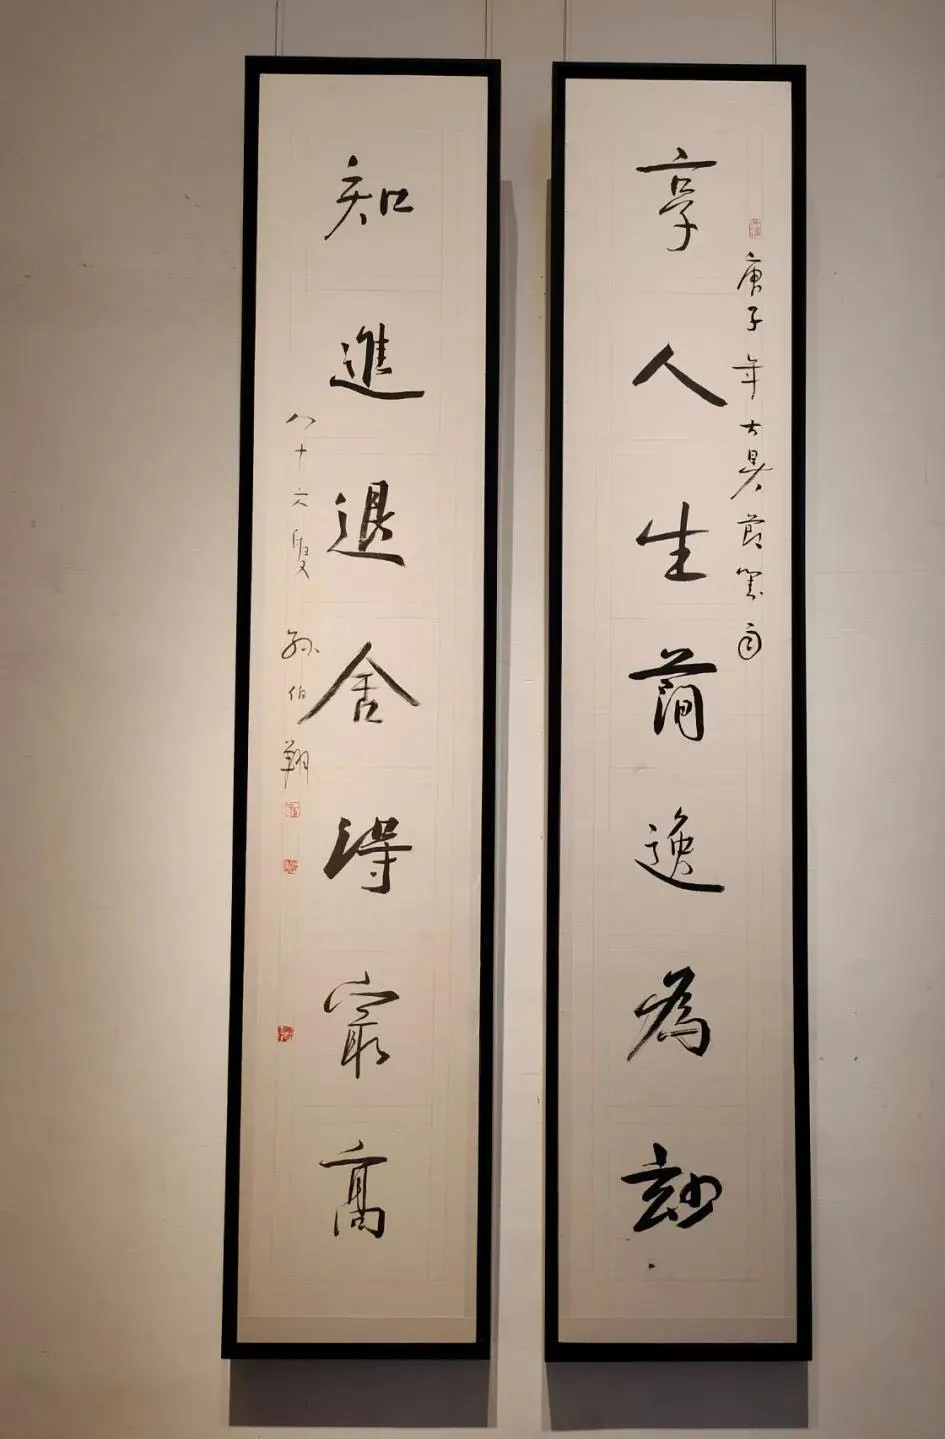 庚子年大暑節
享人生簡逸為玅
知進退舍得最高
八十六叟 孫伯翔